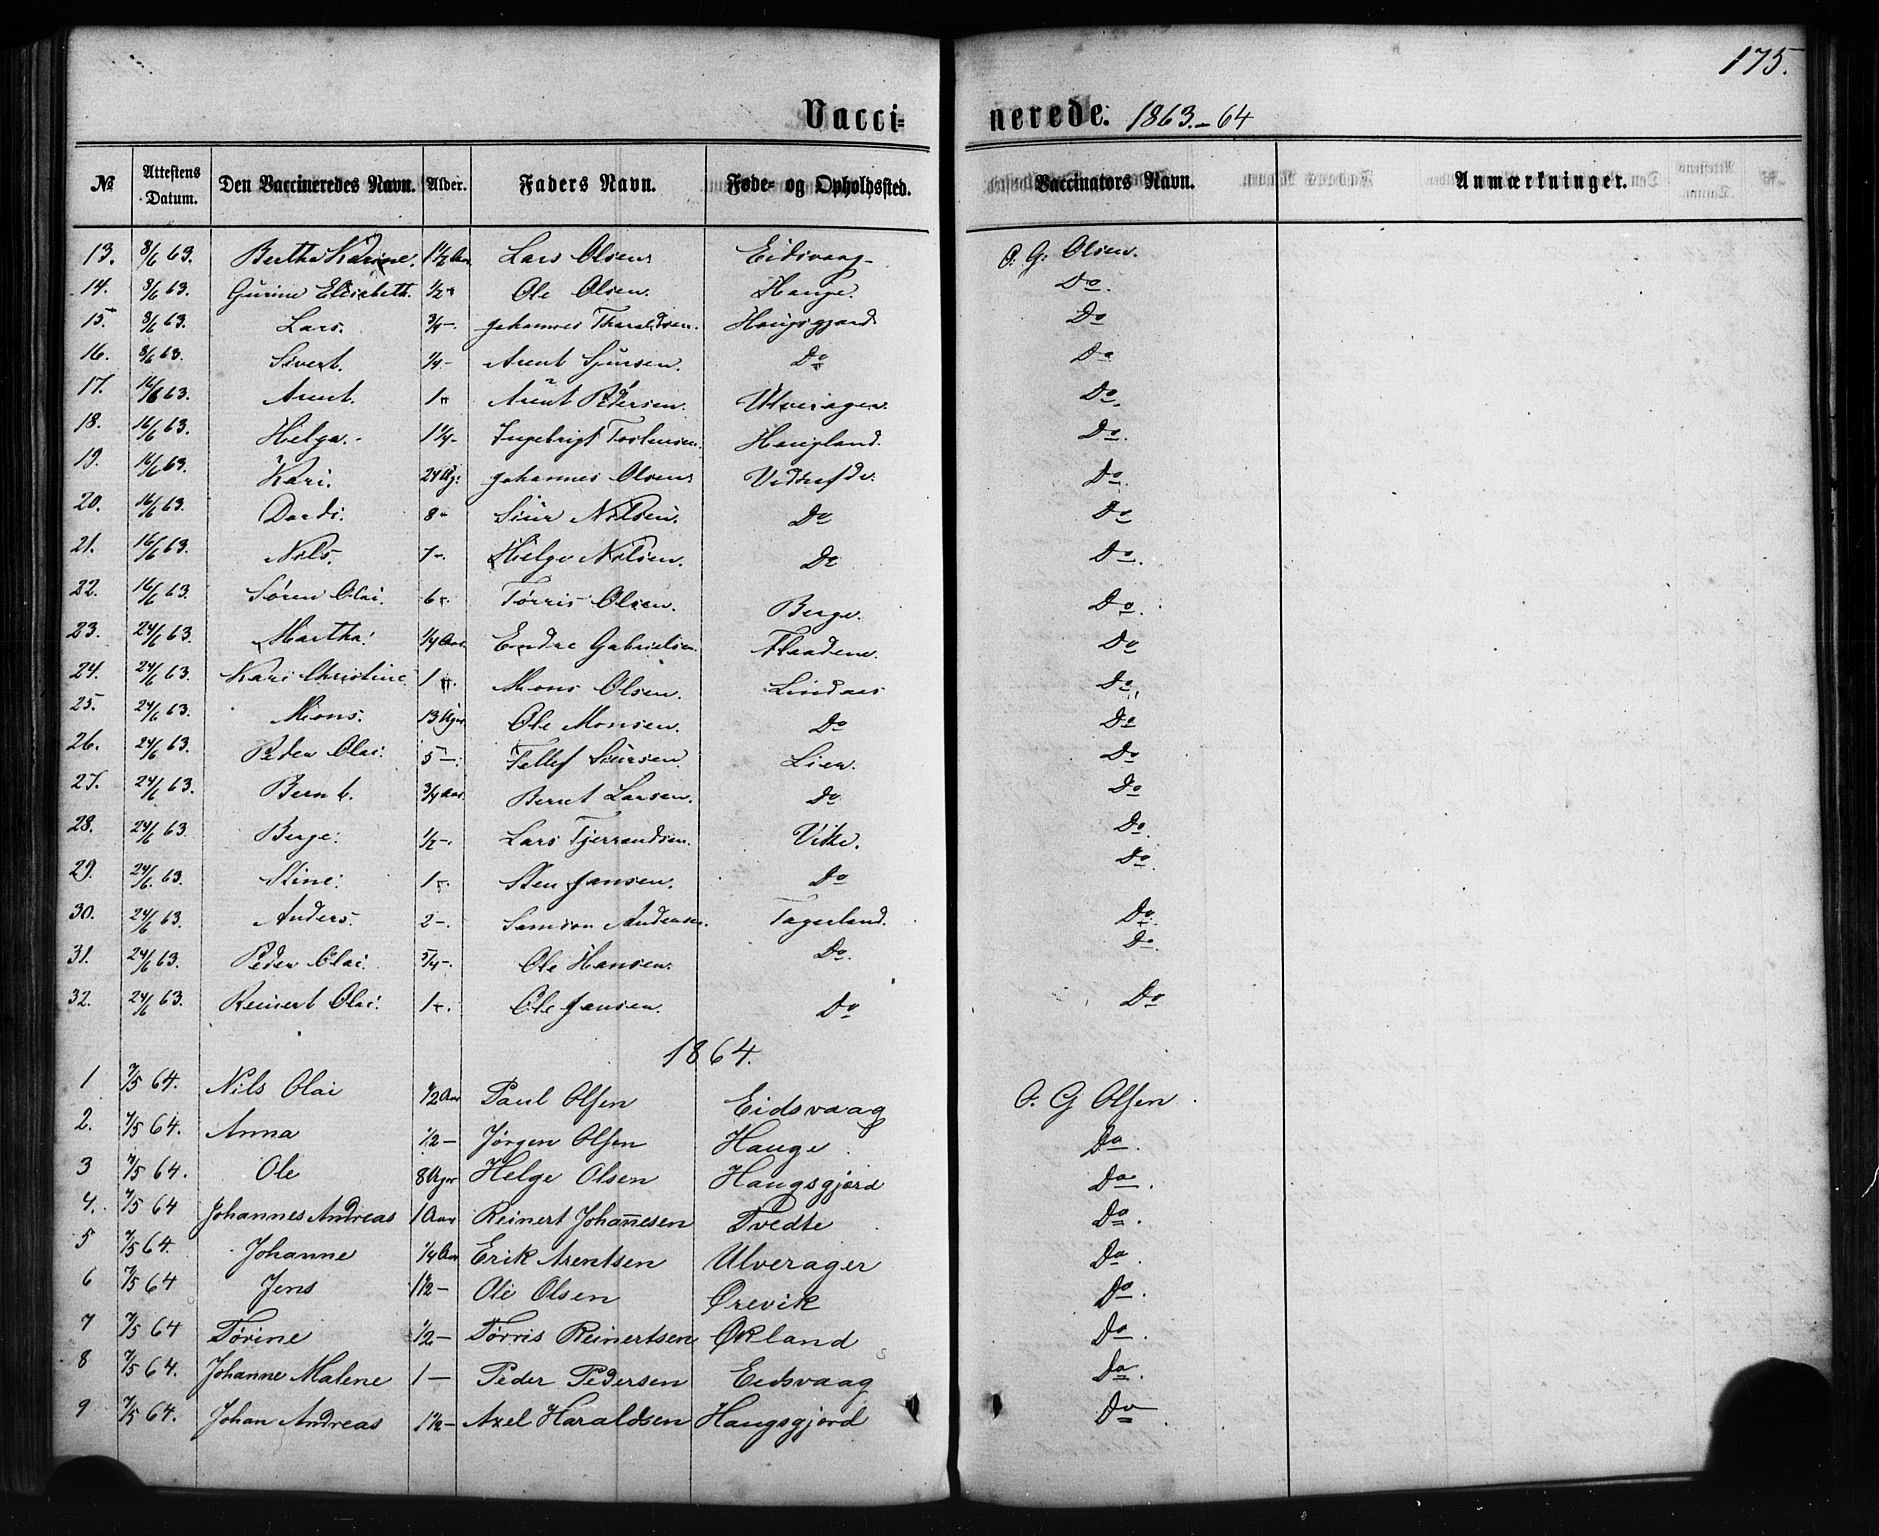 175.
Vaccinerede. 1863.-64
No Attestens Datum. Den Vaccineredes Navn. Alder. Faders Navn. Føde- og Opholdssted. Vaccinators Navn. Anmærkninger.
13. 8/6 63. Bertha Karine. 1 1/2 Aar. Lars Olsen. Eidsvaag. O. G. Olsen.
14. 8/6 63. Gurine Elisabeth. 1/2 - Ole Olsen. Hauge. Do.
15. 8/6 63. Lars. 3/4 -. Johannes Tharaldsen. Haugsgjærd Do
16. 8/6 63. Sivert. 1/4 - Arent Sjursen. Do Do
17. 16/6 63. Arent. 1 - Arent Pedersen. Ulverager. Do.
18. 16/6 63. Helga. 1 1/4 - Ingebrigt Tostensen. Haugland. Do.
19. 16/6 63. Kari. 24 Ug: Johannes Olsen. Do.
20. 16/6 63. Dordi. 8 - Siur Nilsen. Do Do
21. 16/6 63. Nils. 7 -. Helge Nilsen. Do Do.
22. 16/6 63. Søren Olai. 6 -. Tørris Olsen. Berge. Do.
23. 24/6 63. Martha. 1/4 Aar. Endre Gabrielsen. Flaadene. Do
24. 24/6 63. Kari Christine 1 -. Mons Olsen. Lindaas Do
25. 24/6 63. Mons. 13 Uger Ole Monsen. Do Do
26. 24/6 63. Peder Olai. 5 -. Tellef Siursen. Lien. Do
27. 24/6 63. Bernt. 3/4 Aar. Bernt Larsen. Do Do
28. 24/6 63. Berge. 1/2 -. Lars Tjerrandsen. Vike. Do.
29. 24/6 63. Stine. 1 -. Sten Jansen. Do Do.
30. 24/6 63. Anders. 2 -. Samson Andersen. Tagerland. Do.
31. 24/6 63. Peder Olai. 5/4 -. Ole Hansen. Do. Do.
32. 24/6 63. Reinert Olai. 1 -. Ole Jansen. Do Do
1864.
1 7/5 64. Nils Olai 1/2 Aar Paul Olsen Eidsvaag O. G Olsen.
2. 7/5 64. Anna 1/2 - Jørgen Olsen Hauge. Do.
3 7/5 64. Ole 8 Uger Helge Olsen Haugsgjerd Do.
4. 7/5 64 Johannes Andreas 1 Aar Reinert Johannesen Tvedte Do.
5 7/5 64. Johanne 1/4 Aar Erik Arentsen Ulverager Do.
6 7/5 64 Jens 1 1/2 - Ole Olsen Ørevik Do.
7 7/5 64 Tørine 1/2 - Tørris Reinertsen Økland Do.
8 7/5 64. Johanne Malene 1 - Peder Pedersen Eidsvaag Do.
9 7/5 64. Johan Andreas 1 1/2 - Axel Haraldsen Haugsgjerd Do